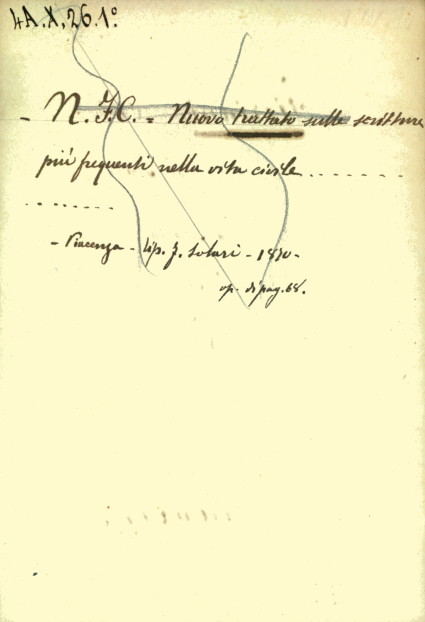 4A.X.26.1º
- N. F. C. = Nuovo trattato sulle scritture
più frequenti nella vita civile . . . . . . . . .
. . . . . . . . .
- Piacenza - Tip. F. Solari - 1870 -
op. di pag. 68.